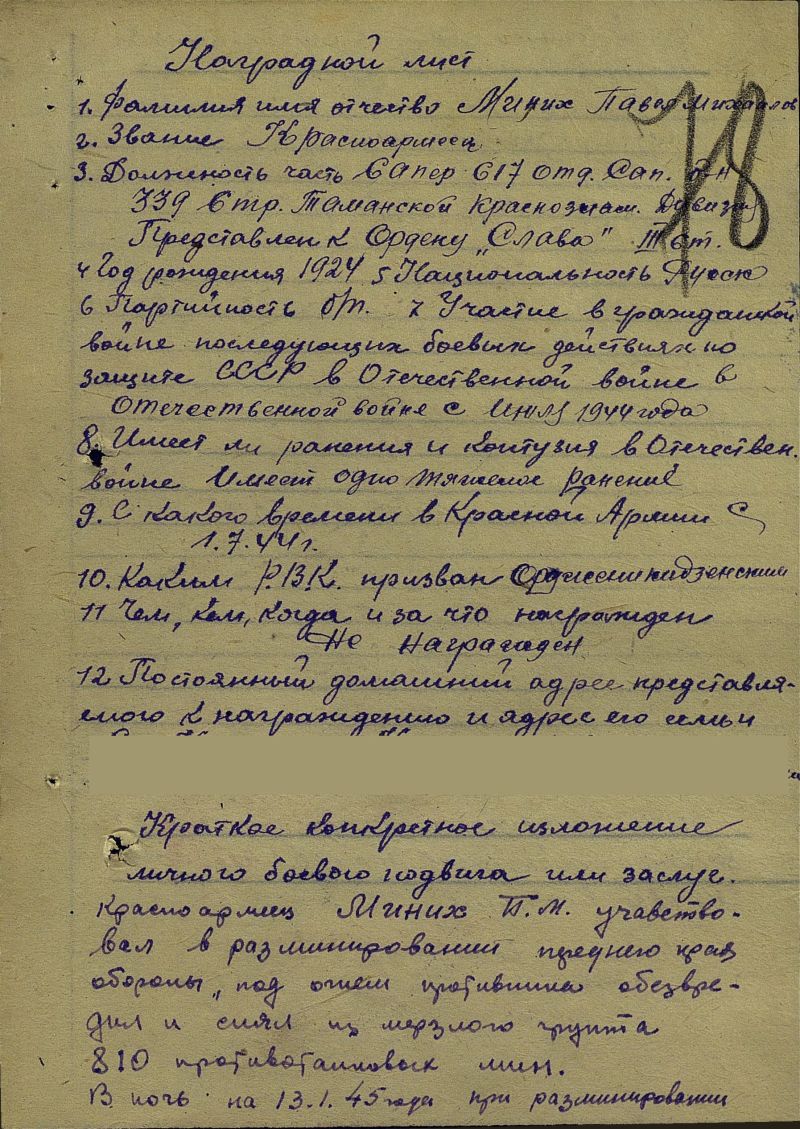 Наградной лист
1. Фамилия имя отчество Миних Павел Михайлов
2. Звание Красноармеец
3. Должность часть Сапер 617 отд. Сап. б-н
339 Стр. Таманской краснознам. Дивизии
Представлен к Ордену "Слава" III ст.
4 Год рождения 1924 5 Национальность Русск
6 Партийность б/п. 7 Участие в гражданской
войне последующих боевых действиях по
защите СССР в Отечественной войне в
Отечественной войне с Июля 1944 года
8. Имеет ли ранения и контузия в Отечествен.
войне Имеет одно тяжелое ранение
9. С какого времени в Красной Армии С
1.7.44 г.
10. Каким Р.В.К. призван Орджоникидзенским
11 Чем, кем, когда и за что награжден
Не награжден
12. Постоянный домашний адрес представля-
емого к награждению и адрес его семьи
Краткое конкретное изложение
личного боевого подвига или заслуг.
Красноармеец Миних П.М. учавство-
вал в разминировании переднего края
обороны, под огнем противника обезвре-
дил и снял из мерзлого грунта
810 противотанковых мин.
В ночь на 13.1.45 года при разминировании